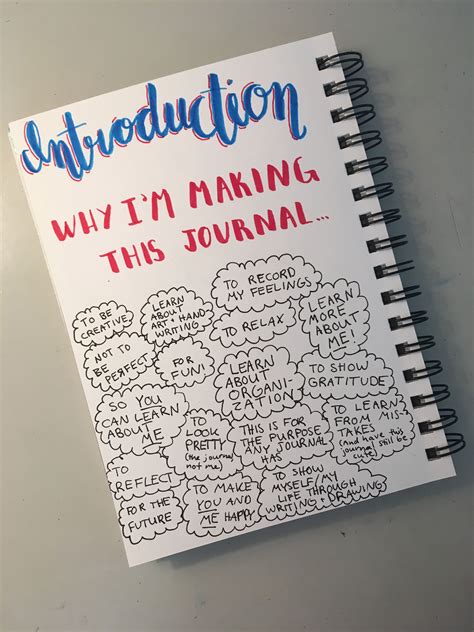 Introduction
WHY I'M MAKING
THIS JOURNAL...
TO BE
CREATIVE
LEARN
ABOUT
ART + HAND
WRITING
TO RECORD
MY FEELINGS
LEARN
MORE
ABOUT
ME!
NOT TO
BE PERFECT
FOR
FUN!
TO RELAX
LEARN
ABOUT
ORGANI-
ZATION
TO SHOW
GRATITUDE
SO YOU
CAN LEARN
ABOUT ME
TO
LOOK
PRETTY
(the journal
not me)
THIS IS FOR
THE PURPOSE
ANY JOURNAL
HAS
TO LEARN
FROM MIS-
TAKES
(and have this
journal still be
cute)
TO
REFLECT
FOR THE
FUTURE
TO MAKE
YOU AND
ME HAPPY
TO SHOW
MYSELF/MY
LIFE THROUGH
WRITING + DRAWING